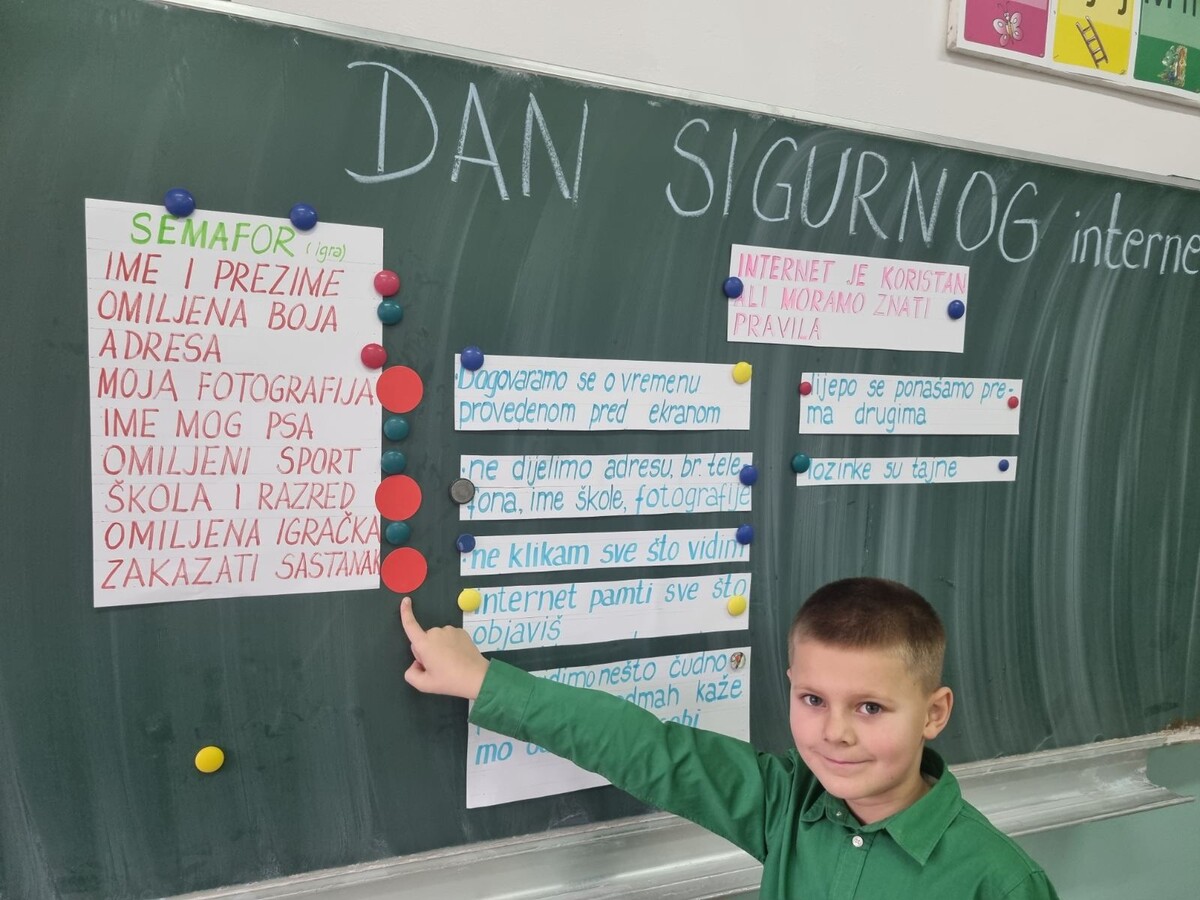 DAN SIGURNOG interne
SEMAFOR (igra)
IME I PREZIME
OMILJENA BOJA
ADRESA
MOJA FOTOGRAFIJA
IME MOG PSA
OMILJENI SPORT
ŠKOLA I RAZRED
OMILJENA IGRAČKA
ZAKAZATI SASTANAK
INTERNET JE KORISTAN
ALI MORAMO ZNATI
PRAVILA
Dogovaramo se o vremenu
provedenom pred ekranom
·ne dijelimo adresu, br. tele-
fona, ime škole, fotografije
·ne klikam sve što vidim
internet pamti sve što
objaviš
dimo nešto čudno
dmah kaže
mo
lijepo se ponašamo pre-
ma drugima
lozinke su tajne